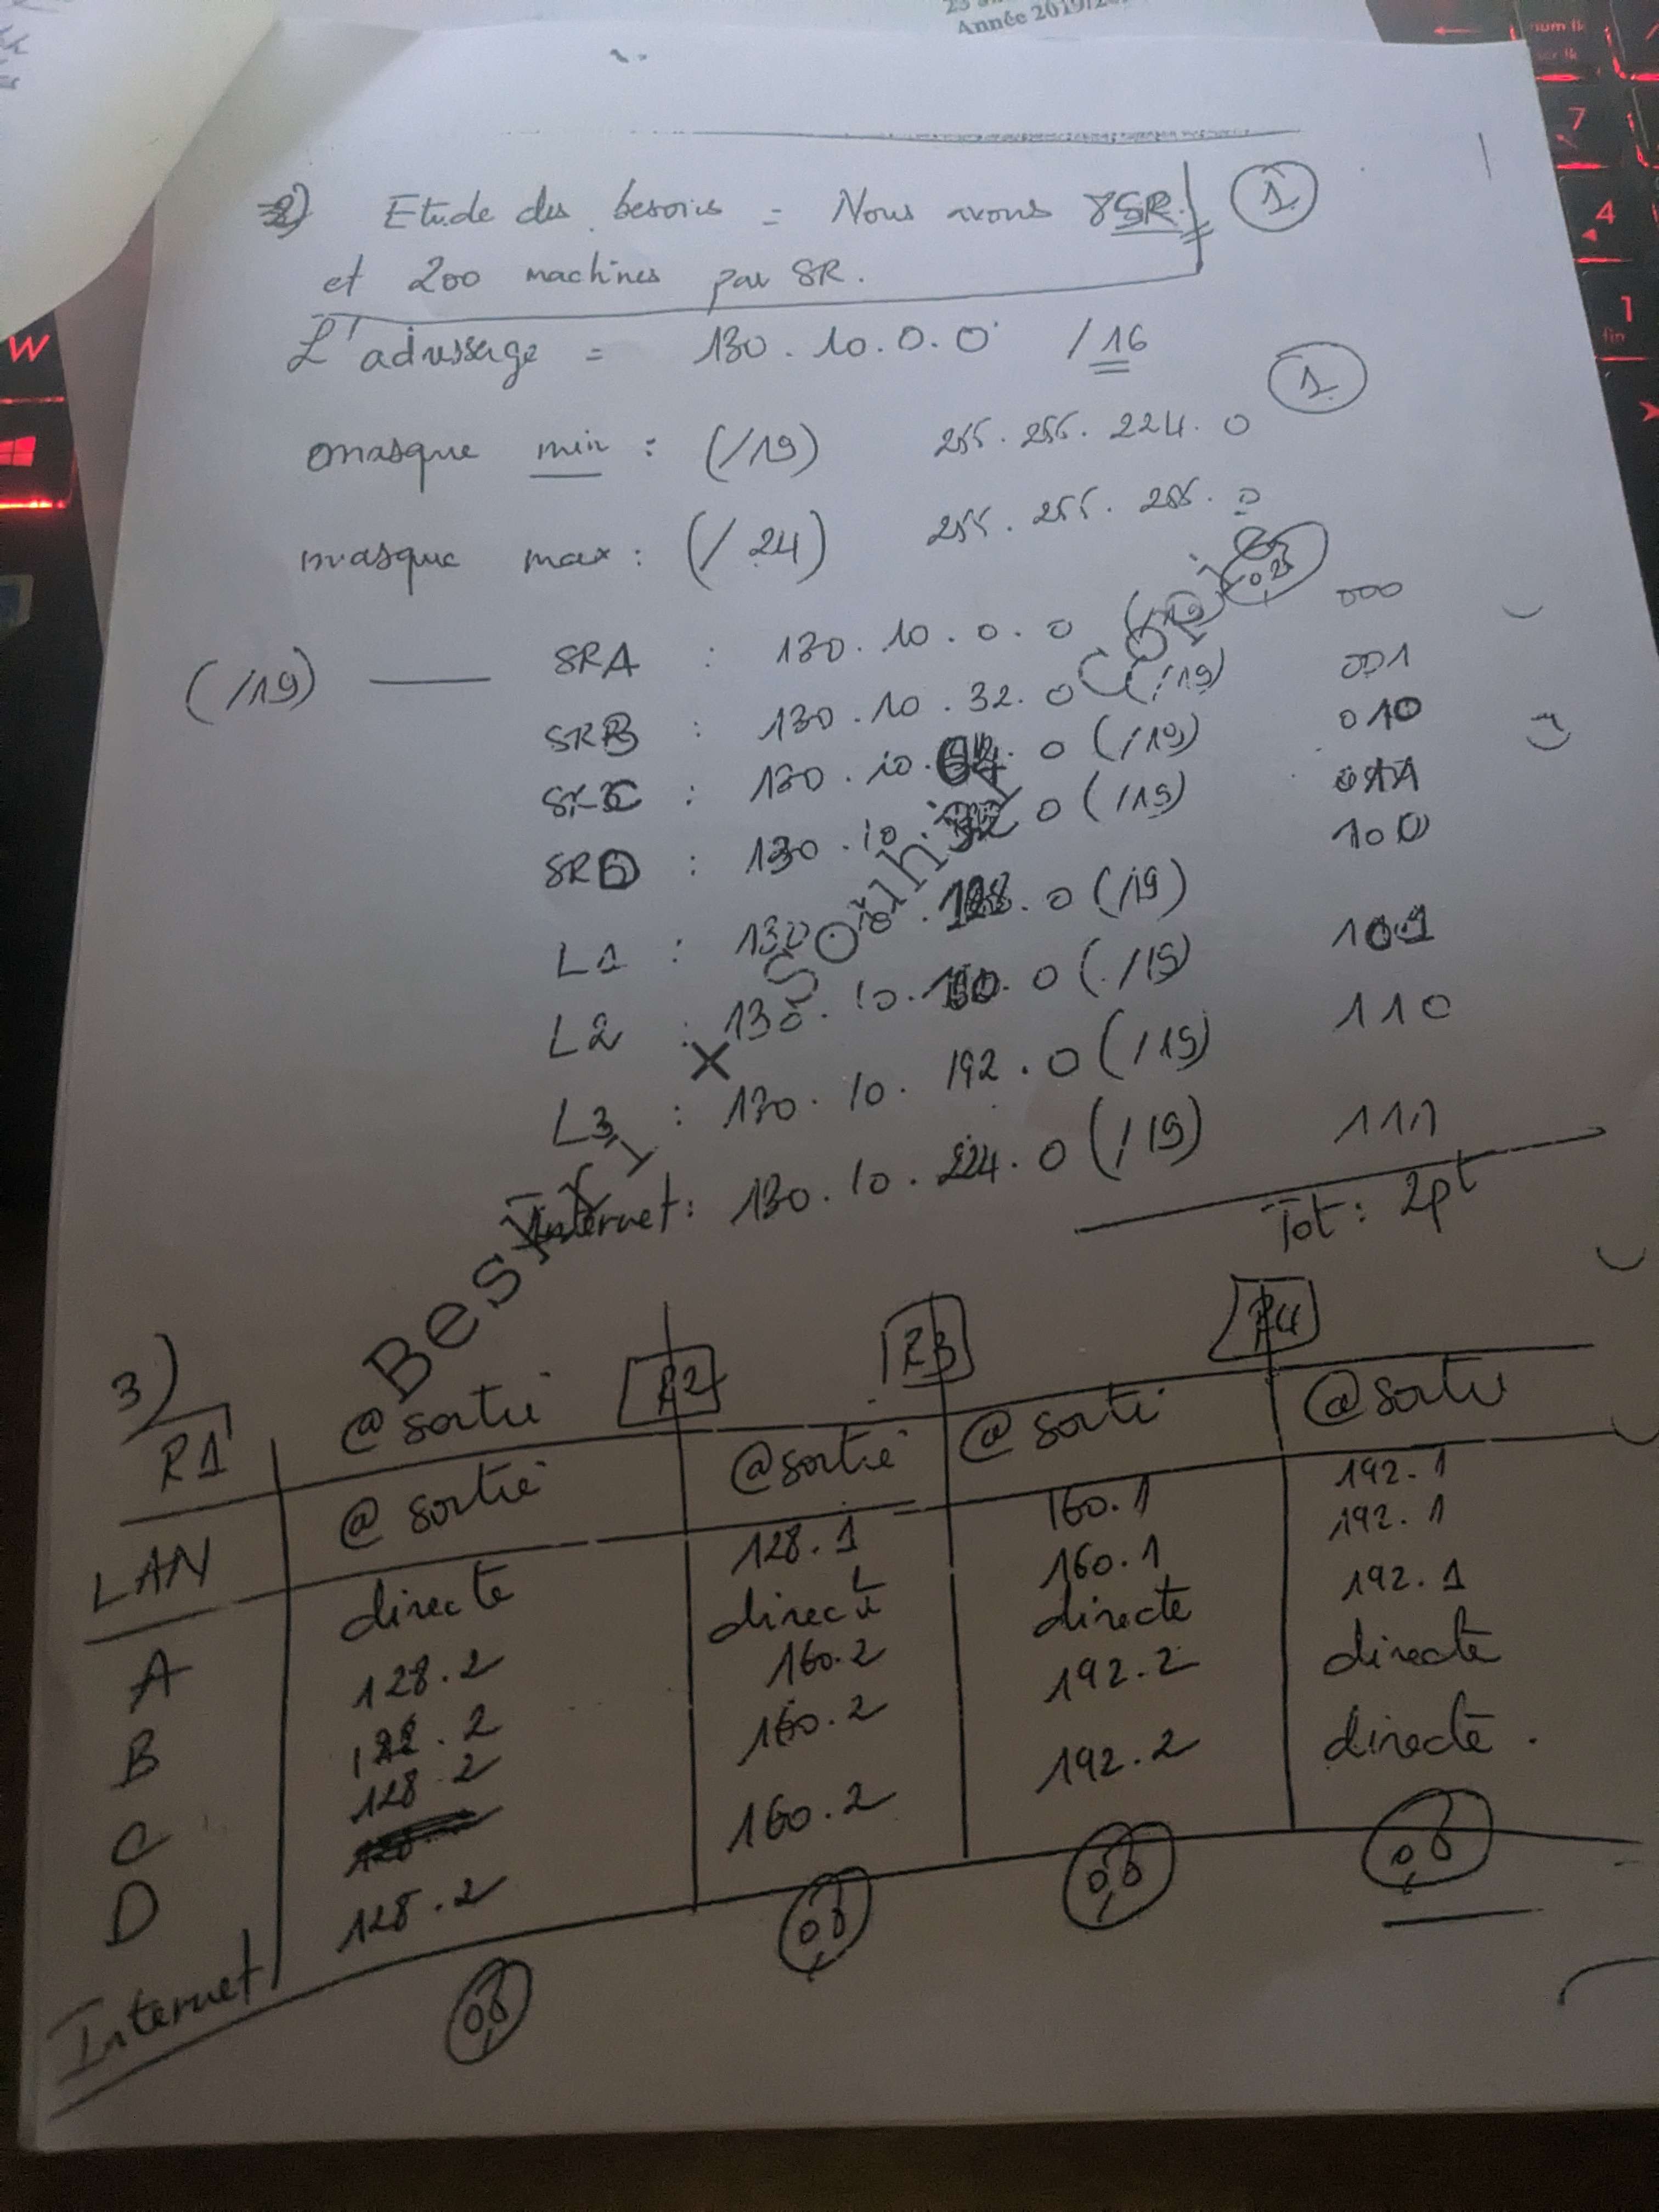 Année 2019/20
num lk
7
4
1
fin
W
2) Etude des besoins = Nous avons 8SR. 1
et 200 machines par SR.
L'adressage = 130.10.0.0 /16
masque min : (/19) 255.255.224.0 1
masque max : (/24) 255.255.255.0
(/19) — SRA : 130.10.0.0 (/19) 000
SRB : 130.10.32.0 (/19) 001
SRC : 130.10.64.0 (/19) 010
SRD : 130.10. .0 (/19) 011
L1 : 130.10.128.0 (/19) 100
L2 : 130.10.160.0 (/19) 101
L3 : 130.10.192.0 (/19) 110
Internet : 130.10.224.0 (/19) 111
Tot : 2pt
Besma x Souhir Copie
3)
R1 @sortie R2 @sortie R3 @sortie R4 @sortie
LAN @sortie
A directe 128.1 160.1 192.1
B 128.2 directe 160.1 192.1
C 128.2 160.2 directe 192.1
D 128.2 160.2 192.2 directe
Internet 128.2 160.2 192.2 directe.